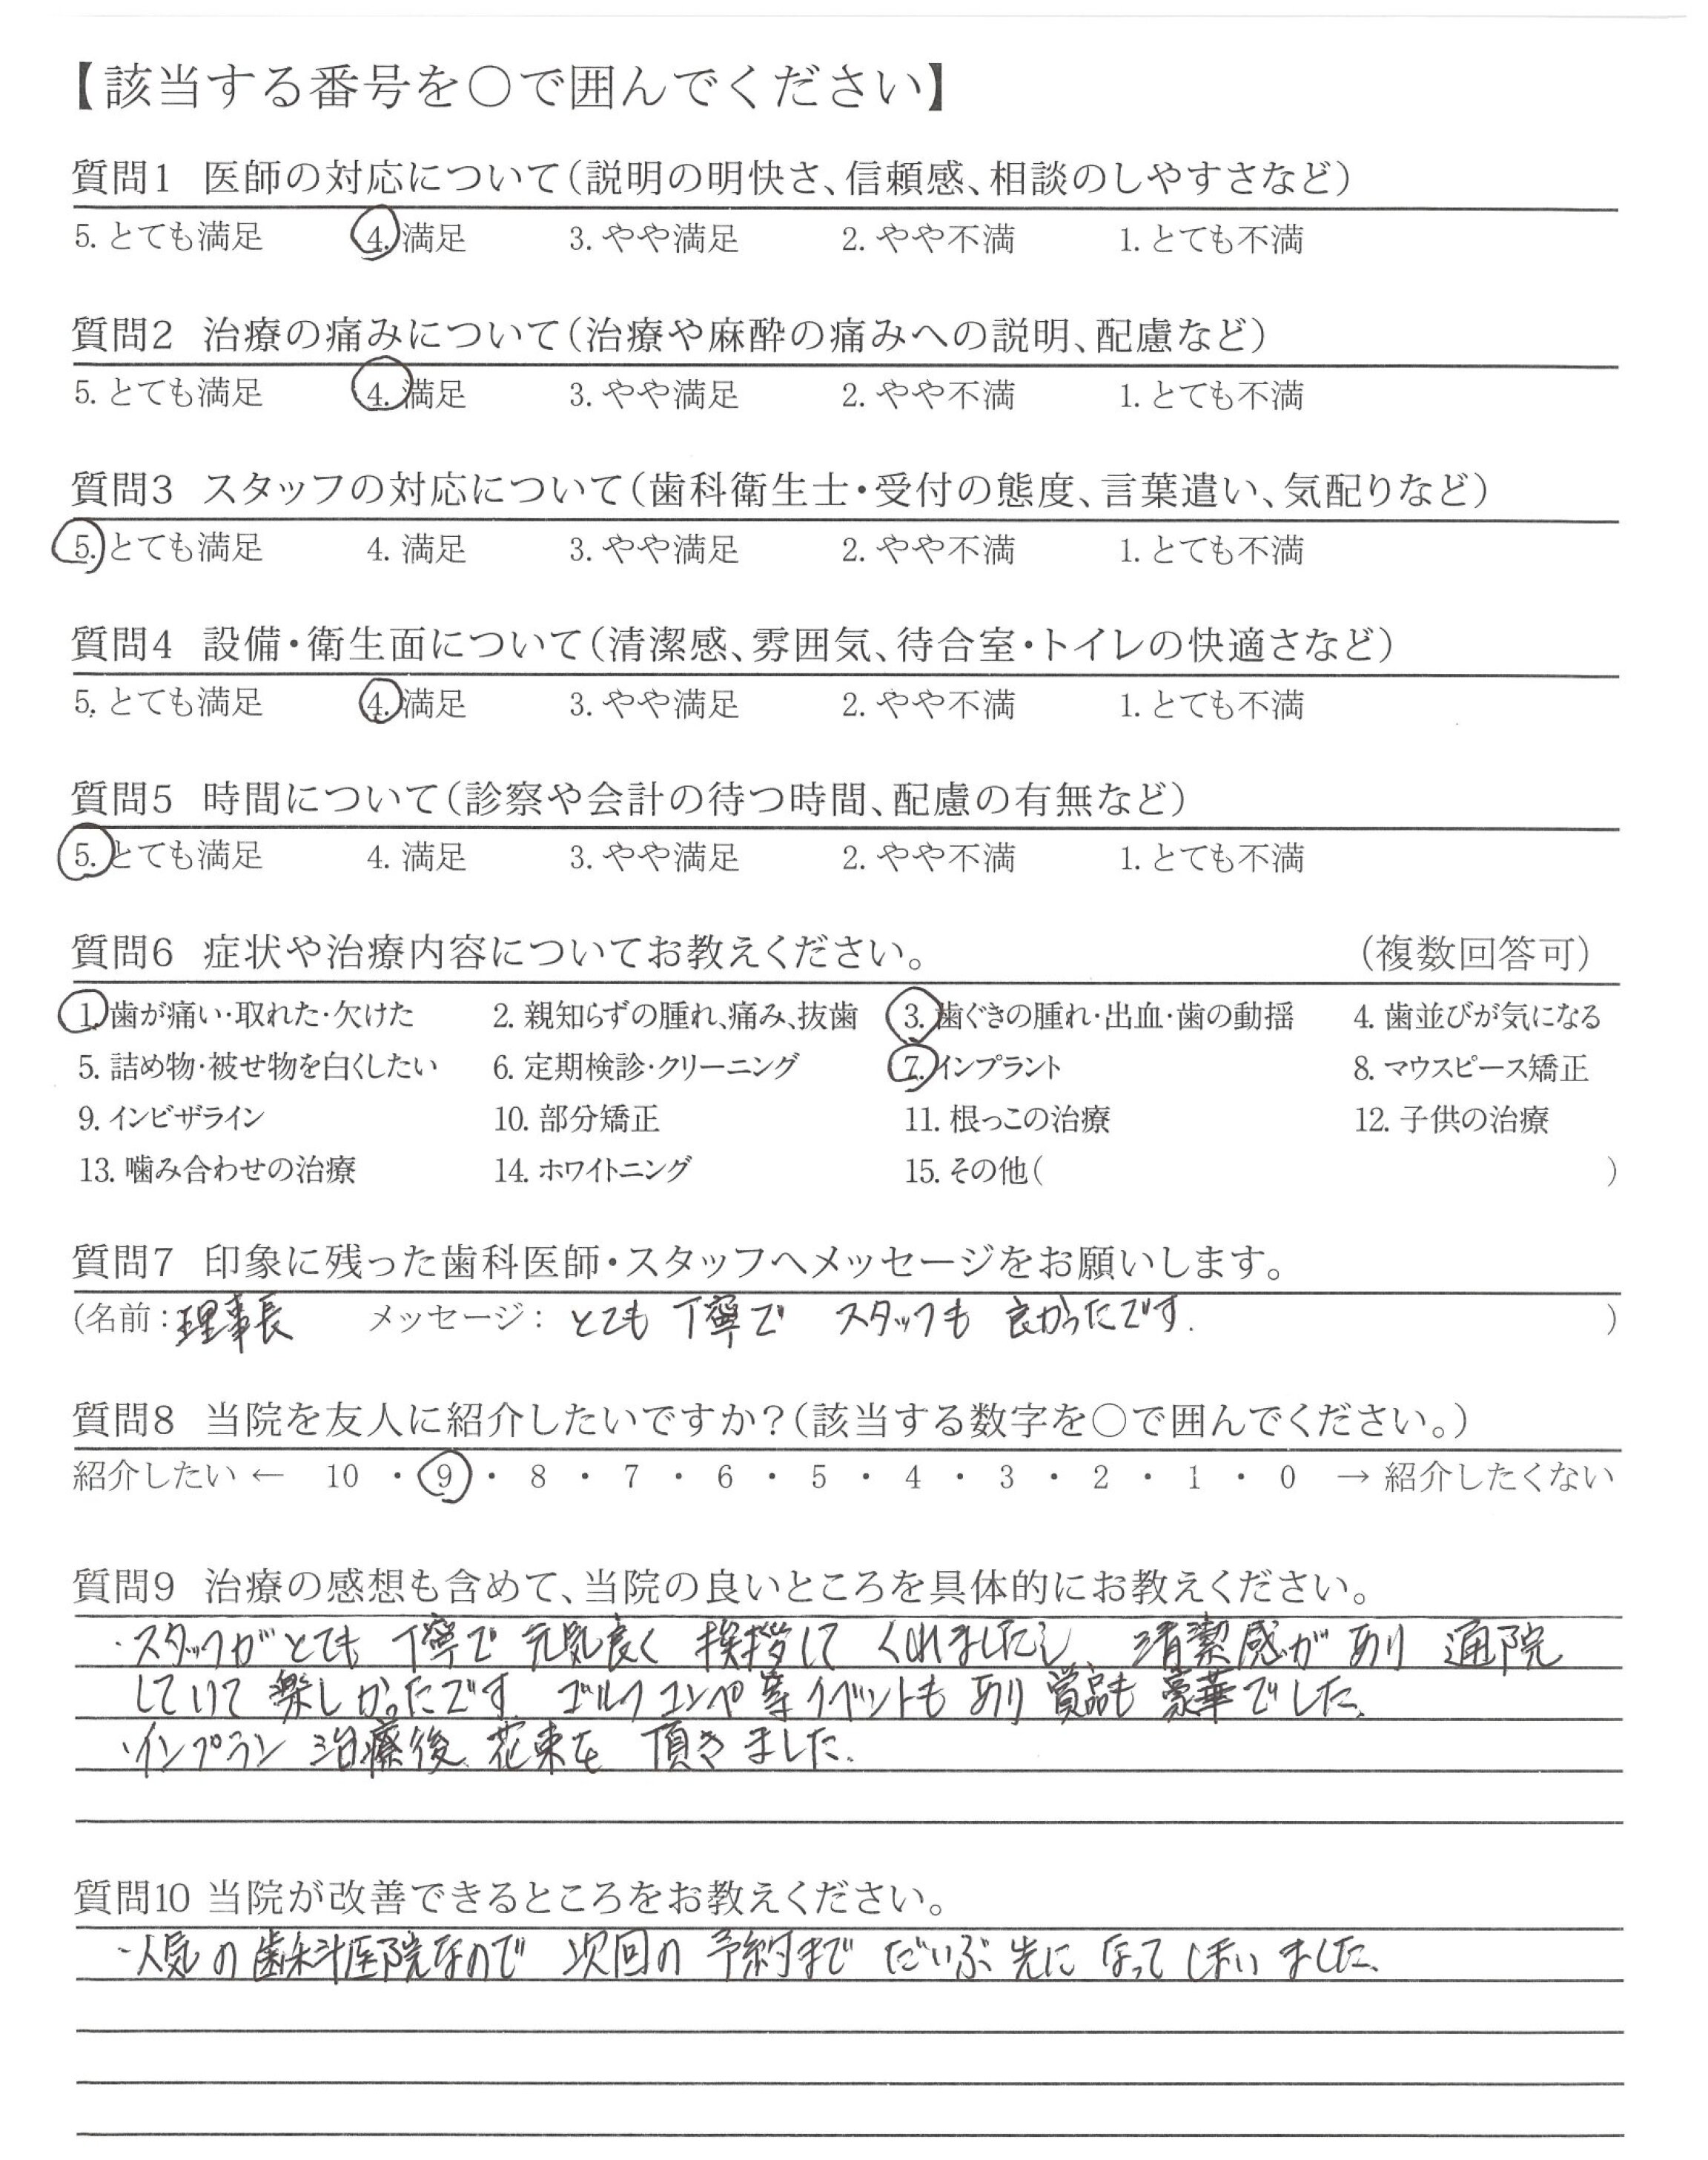 【該当する番号を○で囲んでください】
質問1 医師の対応について(説明の明快さ、信頼感、相談のしやすさなど)
5. とても満足 4. 満足 3. やや満足 2. やや不満 1. とても不満
質問2 治療の痛みについて(治療や麻酔の痛みへの説明、配慮など)
5. とても満足 4. 満足 3. やや満足 2. やや不満 1. とても不満
質問3 スタッフの対応について(歯科衛生士・受付の態度、言葉遣い、気配りなど)
5. とても満足 4. 満足 3. やや満足 2. やや不満 1. とても不満
質問4 設備・衛生面について(清潔感、雰囲気、待合室・トイレの快適さなど)
5. とても満足 4. 満足 3. やや満足 2. やや不満 1. とても不満
質問5 時間について(診察や会計の待つ時間、配慮の有無など)
5. とても満足 4. 満足 3. やや満足 2. やや不満 1. とても不満
質問6 症状や治療内容についてお教えください。 (複数回答可)
1. 歯が痛い・取れた・欠けた 2. 親知らずの腫れ、痛み、抜歯 3. 歯ぐきの腫れ・出血・歯の動揺 4. 歯並びが気になる
5. 詰め物・被せ物を白くしたい 6. 定期検診・クリーニング 7. インプラント 8. マウスピース矯正
9. インビザライン 10. 部分矯正 11. 根っこの治療 12. 子供の治療
13. 噛み合わせの治療 14. ホワイトニング 15. その他( )
質問7 印象に残った歯科医師・スタッフへメッセージをお願いします。
(名前:理事長 メッセージ: とても 丁寧で スタッフも 良かったです. )
質問8 当院を友人に紹介したいですか?(該当する数字を○で囲んでください。)
紹介したい ← 10 ・ 9 ・ 8 ・ 7 ・ 6 ・ 5 ・ 4 ・ 3 ・ 2 ・ 1 ・ 0 → 紹介したくない
質問9 治療の感想も含めて、当院の良いところを具体的にお教えください。
・スタッフがとても 丁寧で 元気良く 挨拶して くれましたし 清潔感が あり 通院
していて 楽しかったです. ゴルフコンペ等イベントも あり 賞品も 豪華でした.
・インプラン 治療後 花束を 頂きました.
質問10 当院が改善できるところをお教えください。
・人気の歯科医院なので 次回の 予約まで だいぶ 先に なって しまい ました.